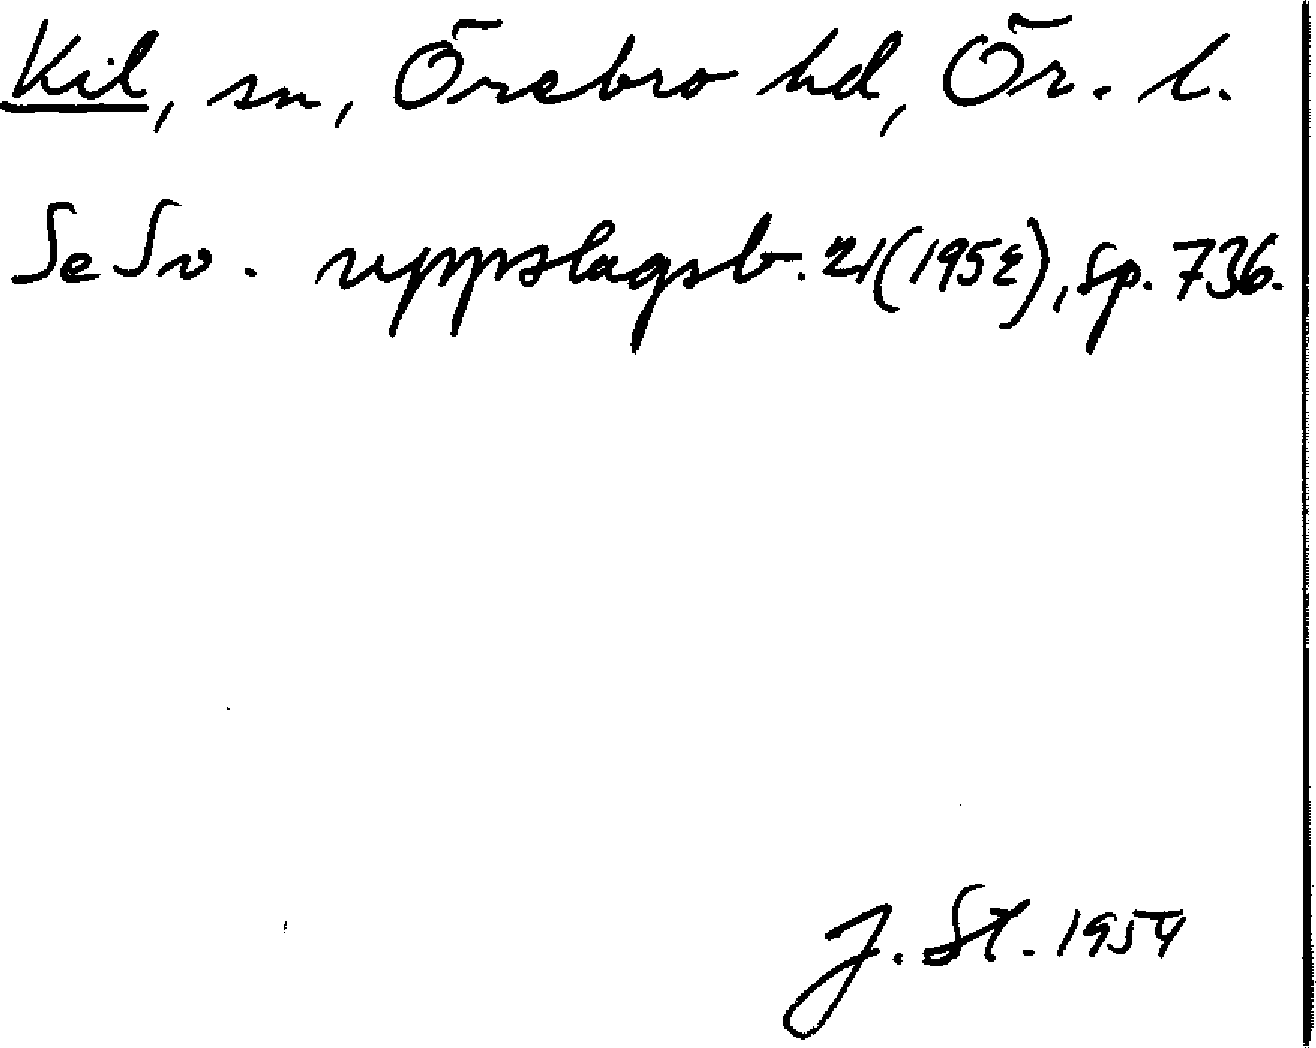 Kil, sn, Örebro hd, Ör. l.
Se Sv. uppslagsb. 21(1952), sp. 736.
J. St. 1954